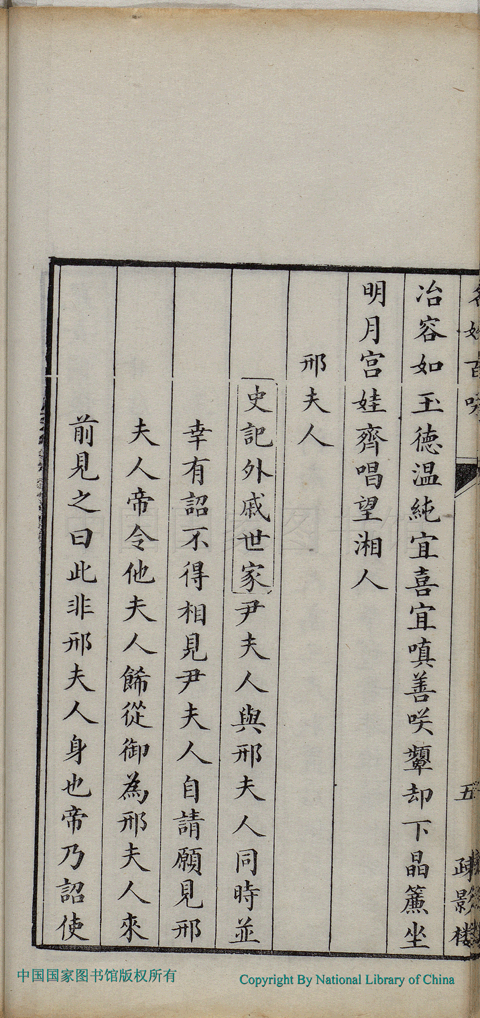 冶容如玉德温純宜喜宜嗔善咲顰却下晶簾坐
明月宮娃齊唱望湘人
邢夫人
史記外戚世家尹夫人與邢夫人同時並
幸有詔不得相見尹夫人自請願見邢
夫人帝令他夫人餙從御為邢夫人來
前見之曰此非邢夫人身也帝乃詔使
五
疎影樓
中国国家图书馆版权所有
Copyright By National Library of China